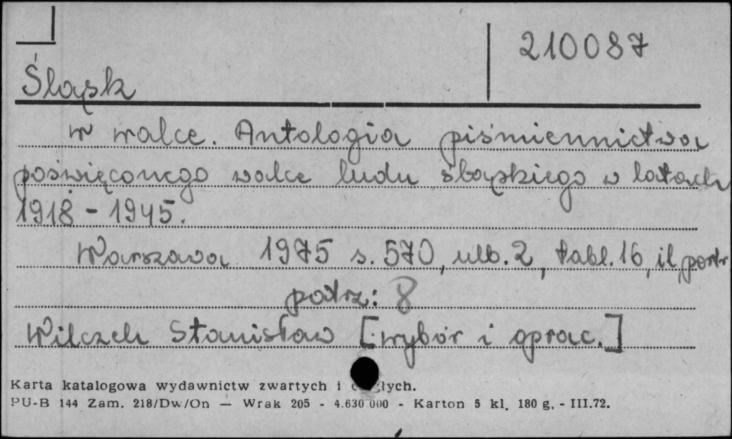 210087
Śląsk
w walce. Antologia piśmiennictwa
poświęconego walce ludu śląskiego w latach
1918 - 1945.
Warszawa 1975 s. 570, ulb. 2, tabl. 16, il, portr
patrz: 8
Wilczek Stanisław [: wybór i oprac.]
Karta katalogowa wydawnictw zwartych i
PU-B 144 Zam. 218/Dw/On — Wrak 205 - 4.630 000 - Karton 5 kl. 180 g. - III.72.